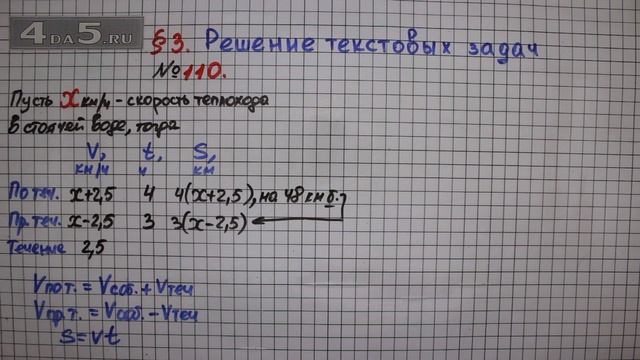 4DA5.RU
§ 3. Решение текстовых задач
№110.
Пусть x км/ч - скорость теплохода
в стоячей воде, тогда
V, t, S,
км/ч ч км
По теч. x+2,5 4 4(x+2,5), на 48 км б.
Пр. теч. x-2,5 3 3(x-2,5)
Течение 2,5
Vпо т. = Vсоб. + Vтеч
Vпр. т. = Vсоб. - Vтеч
S = vt